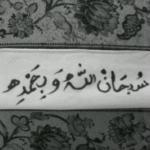 سُبْحَانَ اللّٰهِ وَ بِحَمْدِهِ